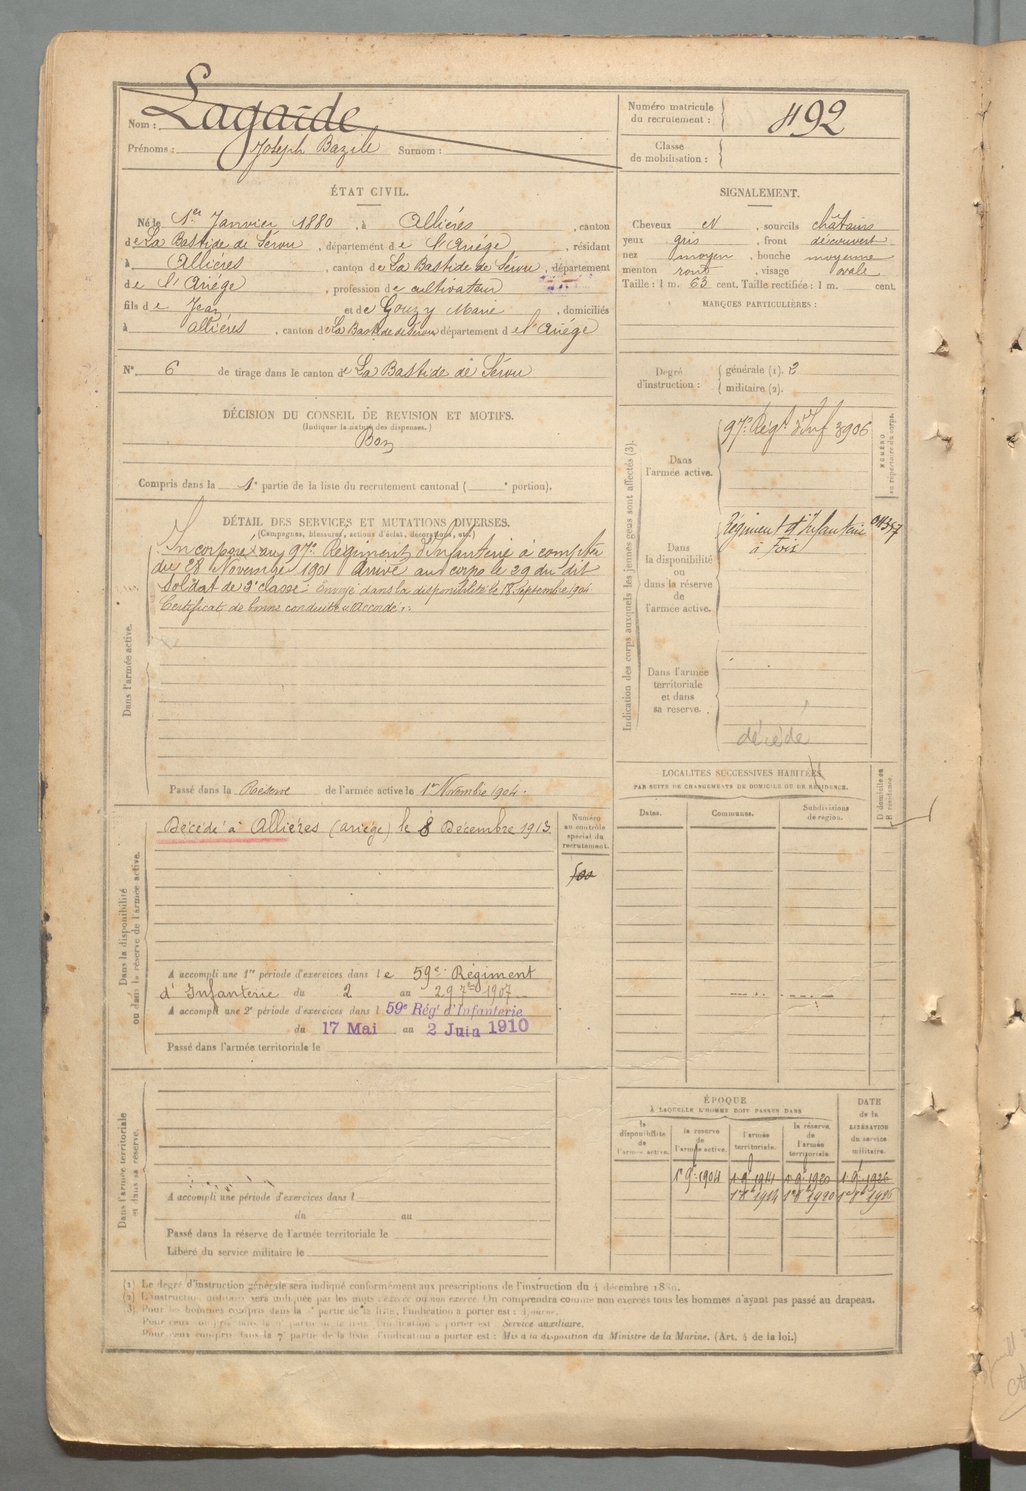 Nom : Lagarde
Prénoms : Joseph Bazile Surnom :
Numéro matricule du recrutement : 492
Classe de mobilisation :
ÉTAT CIVIL.
Né le 1er Janvier 1880, à Allières, canton
de La Bastide de Sérou, département de l'Ariège, résidant
à Allières, canton de La Bastide de Sérou, département
de l'Ariège, profession de cultivateur
fils de Jean et de Gouzy Marie, domiciliés
à Allières, canton de La Bastide de Sérou département de l'Ariège
N° 6 de tirage dans le canton de La Bastide de Sérou
DÉCISION DU CONSEIL DE REVISION ET MOTIFS.
(Indiquer la nature des dispenses.)
Bon
Compris dans la 1e partie de la liste du recrutement cantonal ( e portion).
SIGNALEMENT.
Cheveux N, sourcils châtains
yeux gris, front découvert
nez moyen, bouche moyenne
menton rond, visage ovale
Taille : 1 m. 63 cent. Taille rectifiée : 1 m. cent.
MARQUES PARTICULIÈRES :
Degré d'instruction : générale (1). 2
militaire (2).
DÉTAIL DES SERVICES ET MUTATIONS DIVERSES.
(Campagnes, blessures, actions d'éclat, décorations, etc.)
Dans l'armée active.
Incorporé au 97e Régiment d'Infanterie à compter
du 28 Novembre 1901 Arrivé au corps le 29 du dit
Soldat de 2e classe. Envoyé dans la disponibilité le 18 Septembre 1904
Certificat de bonne conduite "Accordé".
Passé dans la Réserve de l'armée active le 1er Novembre 1904.
Indication des corps auxquels les jeunes gens sont affectés (3).
Dans l'armée active.
97e Régt d'Inf 3906
NUMÉRO au répertoire du corps.
Dans la disponibilité ou dans la réserve de l'armée active.
Régiment d'Infanterie
à Foix
Dans l'armée territoriale et dans sa réserve.
décédé
Dans la disponibilité ou dans la réserve de l'armée active.
Décédé à Allières (Ariège) le 8 Décembre 1913
Numéro au contrôle spécial du recrutement.
A accompli une 1re période d'exercices dans le 59e Régiment
d'Infanterie du 2 au 29 7bre 1907
A accompli une 2e période d'exercices dans l 59e Régt d'Infanterie
du 17 Mai au 2 Juin 1910
Passé dans l'armée territoriale le
LOCALITÉS SUCCESSIVES HABITÉES
PAR SUITE DE CHANGEMENTS DE DOMICILE OU DE RÉSIDENCE.
Dates. Communes. Subdivisions de région. D domicile ou R résidence.
Dans l'armée territoriale et dans sa réserve.
A accompli une période d'exercices dans l
du au
Passé dans la réserve de l'armée territoriale le
Libéré du service militaire le
ÉPOQUE
À LAQUELLE L'HOMME DOIT PASSER DANS
la disponibilité de l'armée active. la réserve de l'armée active. l'armée territoriale. la réserve de l'armée territoriale.
DATE de la LIBÉRATION du service militaire.
1er 9bre 1904 1er 9bre 1914 1er 9bre 1920 1er 9bre 1926
(1) Le degré d'instruction générale sera indiqué conformément aux prescriptions de l'instruction du 4 décembre 1889.
(2) L'instruction militaire sera indiquée par les mots : exercé ou non exercé. On comprendra comme non exercés tous les hommes n'ayant pas passé au drapeau.
Service auxiliaire.
Pour ceux compris dans la partie de la liste l'indication à porter est : Mis à la disposition du Ministre de la Marine. (Art. 4 de la loi.)